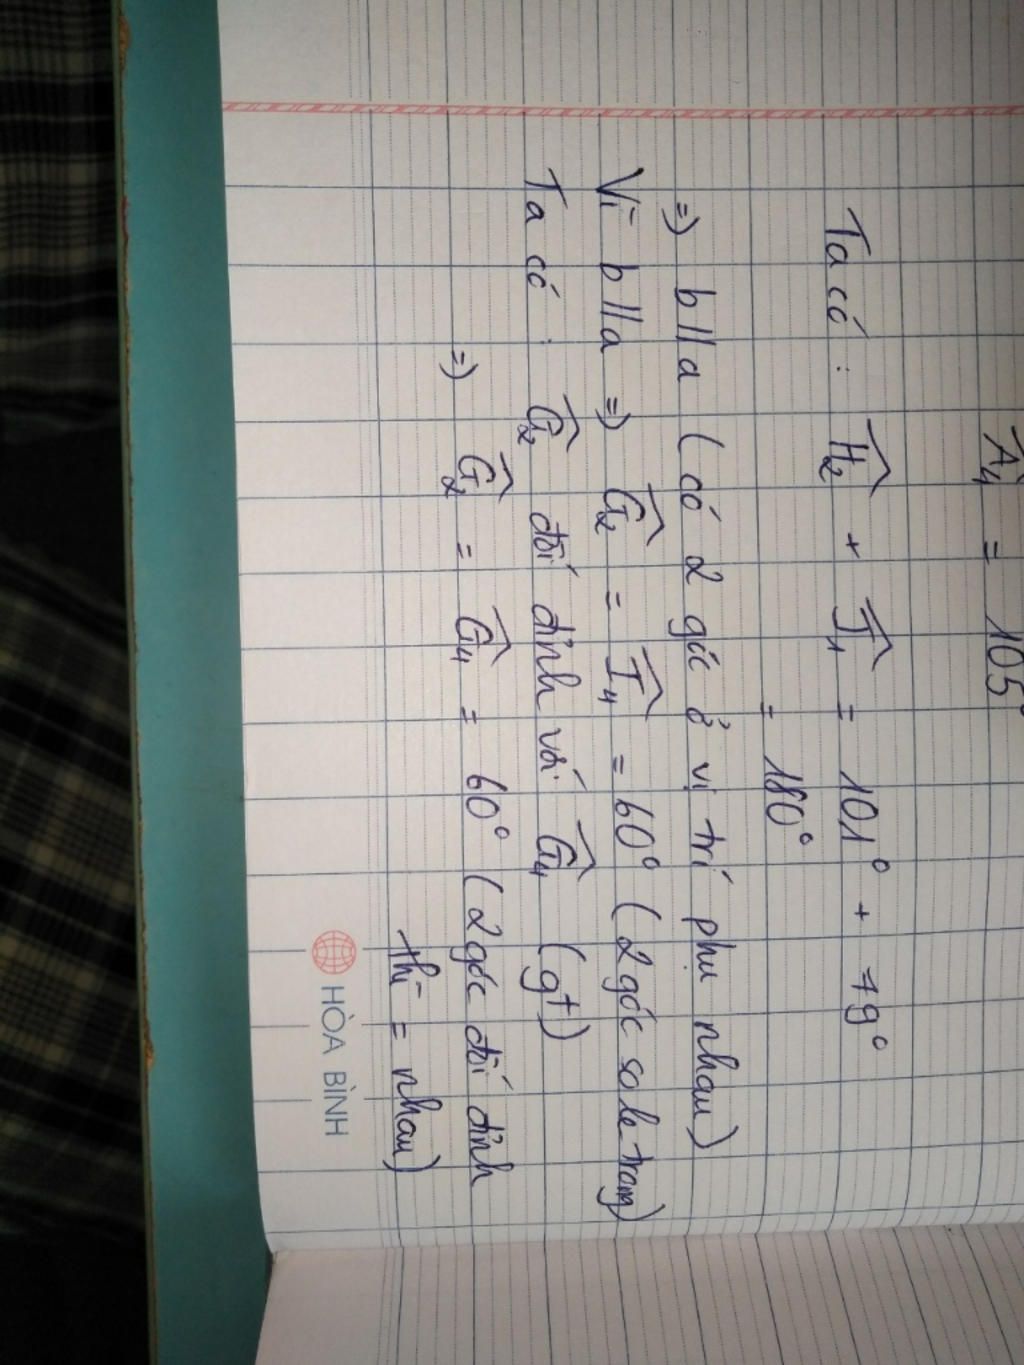 Â₄ = 105°
Ta có : Ĥ₂ + Î₁ = 101° + 79°
= 180°
=) b // a (có 2 góc ở vị trí phụ nhau)
Vì b // a =) Ĝ₂ = Î₄ = 60° (2 góc so le trong)
Ta có : Ĝ₂ đối đỉnh với Ĝ₄ (gt)
=) Ĝ₂ = Ĝ₄ = 60° (2 góc đối đỉnh
thì = nhau)
HÒA BÌNH